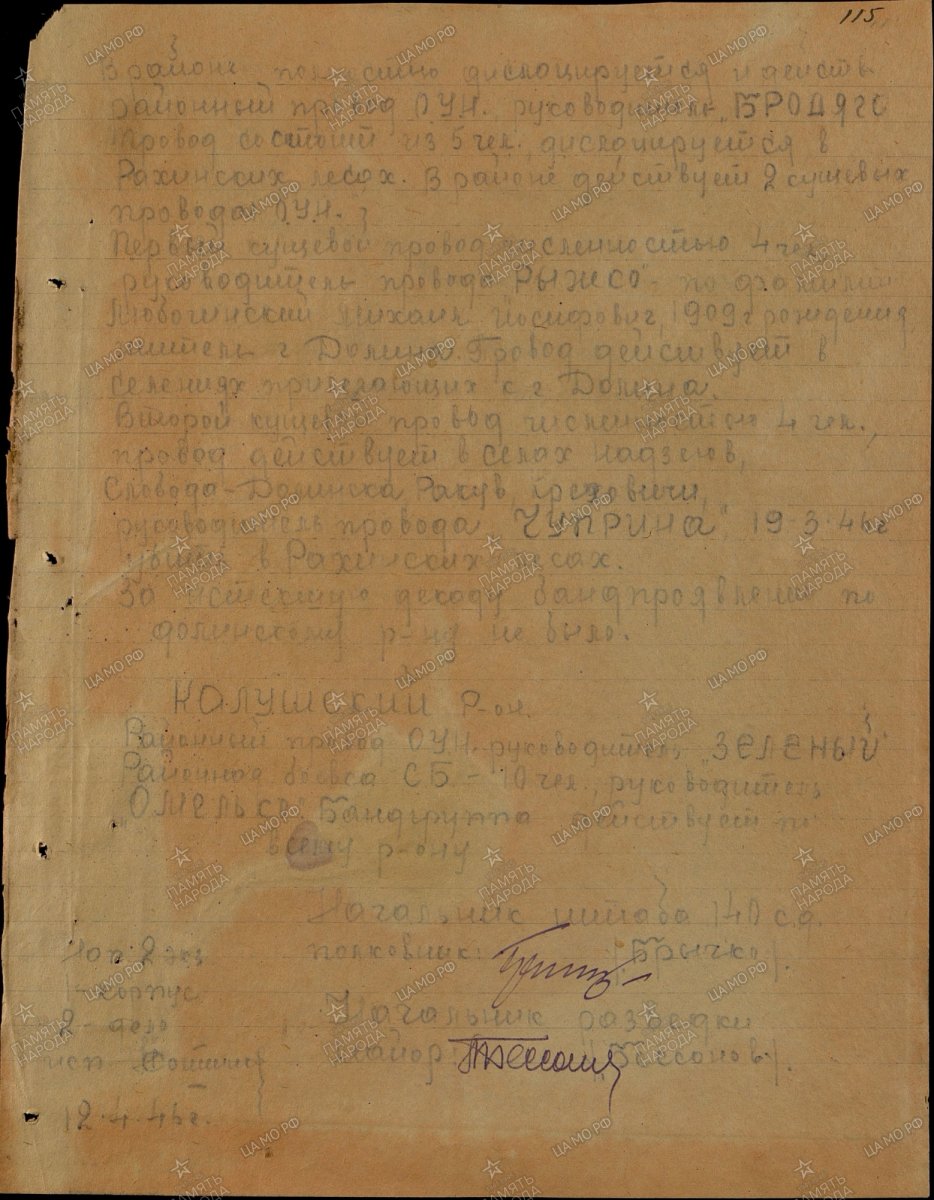 115
В районе полностью дислоцируется и действ
районный провод ОУН. руководитель „БРОДЯГО
Провод состоит из 5 чел., дислоцируется в
Рахинских лесах. В районе действует 2 кущевых
провода ОУН.
Первый кущевой провод численностью 4 чел.
руководитель провода "РЫЖКО" - по фамилии
Михаил Иосифович, 1909 г рождения,
житель г Долина. Провод действует в
селениях прилегающих к г Долина.
Второй кущевой провод численностью 4 чел.,
провод действует в селах Надзеюв,
Слобода-Долинска, Ракув,
руководитель провода „ЧУПРИНА", 19.3.46г
убит в Рахинских лесах.
За истекшую декаду бандпроявлений по
Долинскому р-ну не было.
КАЛУШСКИЙ р-он.
Районный провод ОУН. руководитель „ЗЕЛЕНЫЙ"
Районная боевка СБ - 10 чел., руководитель
Бандгруппа действует по
всему р-ону
Начальник штаба 140 с.д.
полковник: /Брычко/.
Начальник разведки
майор /Бессонов/.
2 экз
1-корпус
2-дело
исп
12.4.46г.